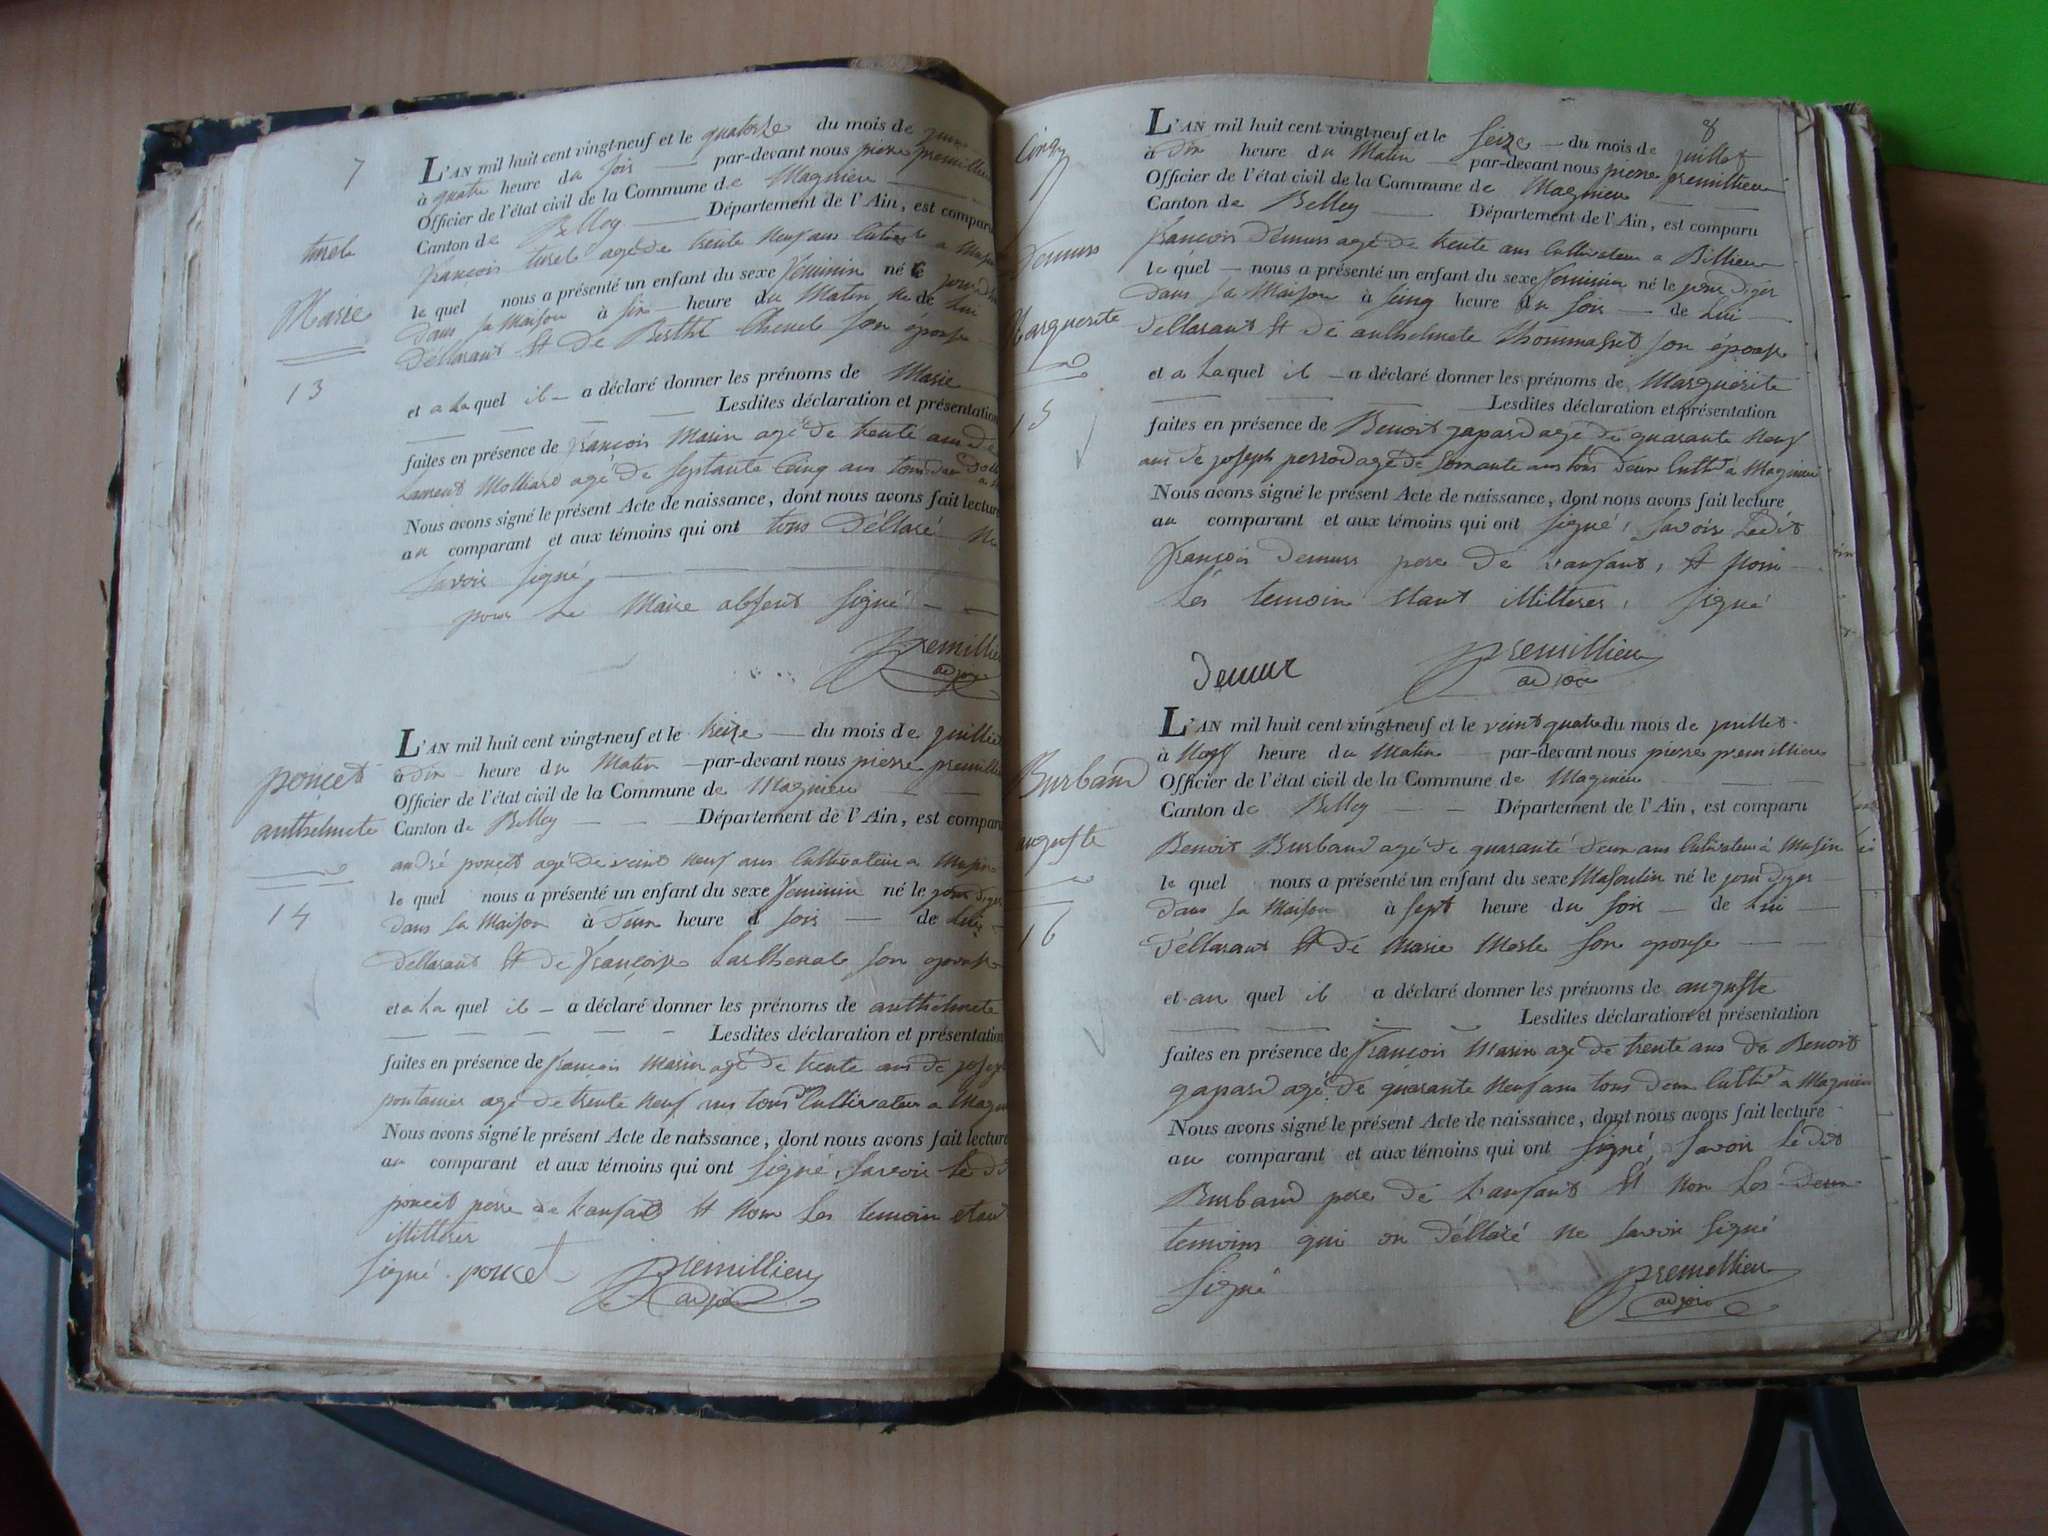 7
turel
Marie
13
L'AN mil huit cent vingt-neuf et le quatorze du mois de juin
à quatre heure du soir par-devant nous pierre premillieu
Officier de l'état civil de la Commune de Magnieu
Canton de Belley Département de l'Ain, est comparu
françois turel agé de trente neuf ans a
le quel nous a présenté un enfant du sexe feminin né le jour
dans sa Maison à six heure du Matin de lui
déllarant et de Berthe son épouse
et a la quel il a déclaré donner les prénoms de Marie
Lesdites déclaration et présentation
faites en présence de françois Marin agé de trente ans de
Laurent Molliard agé de septante Cinq ans tous
Nous avons signé le présent Acte de naissance, dont nous avons fait lecture
au comparant et aux témoins qui ont tous déllaré ne
savoir signé
pour Le Maire absent signé
premillieu
adjoi
poncet
anthelmete
14
L'AN mil huit cent vingt-neuf et le treize du mois de juillet
à dix heure du Matin par-devant nous pierre premillieu
Officier de l'état civil de la Commune de Magnieu
Canton de Belley Département de l'Ain, est comparu
andré poncet agé de veint neuf ans Cultivateur a Musin
le quel nous a présenté un enfant du sexe feminin né le jour d'yer
dans sa Maison à d'eux heure d soir de lui
déllarant et de françoise son epouse
et a la quel il a déclaré donner les prénoms de anthelmete
Lesdites déclaration et présentation
faites en présence de françois Marin agé de trente ans de joseph
pontanier agé de trente neuf ans tous Cultivateur a Magnieu
Nous avons signé le présent Acte de naissance, dont nous avons fait lecture
au comparant et aux témoins qui ont signé, savoir le dit
poncet père de l'anfant et non les temoin etant
illitteres
signé poncet premillieu
adjoi
8
Demurs
Marguerite
15
L'AN mil huit cent vingt-neuf et le seize du mois de juillet
à dix heure du Matin par-devant nous pierre premillieu
Officier de l'état civil de la Commune de Magnieu
Canton de Belley Département de l'Ain, est comparu
françois Demurs agé de trente ans Cultivateur a Billieu
le quel nous a présenté un enfant du sexe feminin né le jour d'yer
dans sa Maison à sinq heure du soir de lui
déllarant et de anthelmete thommasset son épouse
et a la quel il a déclaré donner les prénoms de Marguerite
Lesdites déclaration et présentation
faites en présence de Benoit gapard agé de quarante neuf
ans de joseph perrod agé de soixante ans tous d'eux Cultr a Magnieu
Nous avons signé le présent Acte de naissance, dont nous avons fait lecture
au comparant et aux témoins qui ont signé, savoir Ledit
françois Demurs pere de l'anfant, et non
les temoin etant illitteres, signé
Demur premillieu
adjoi
Burband
auguste
16
L'AN mil huit cent vingt-neuf et le veint quatre du mois de juillet
à neuf heure du Matin par-devant nous pierre premillieu
Officier de l'état civil de la Commune de Magnieu
Canton de Belley Département de l'Ain, est comparu
Benoit Burband agé de quarante d'eux ans Cultivateur à Musin
le quel nous a présenté un enfant du sexe Masculin né le jour d'yer
dans sa Maison à sept heure du soir de lui
déllarant et de Marie Merle son epouse
et au quel il a déclaré donner les prénoms de auguste
Lesdites déclaration et présentation
faites en présence de françois Marin agé de trente ans de Benoit
gapard agé de quarante neuf ans tous d'eux Cultr a Magnieu
Nous avons signé le présent Acte de naissance, dont nous avons fait lecture
au comparant et aux témoins qui ont signé, savoir le dit
Burband pere de l'anfant et non les deux
temoins qui on déllaré ne savoir signé
signé premillieu
adjoi